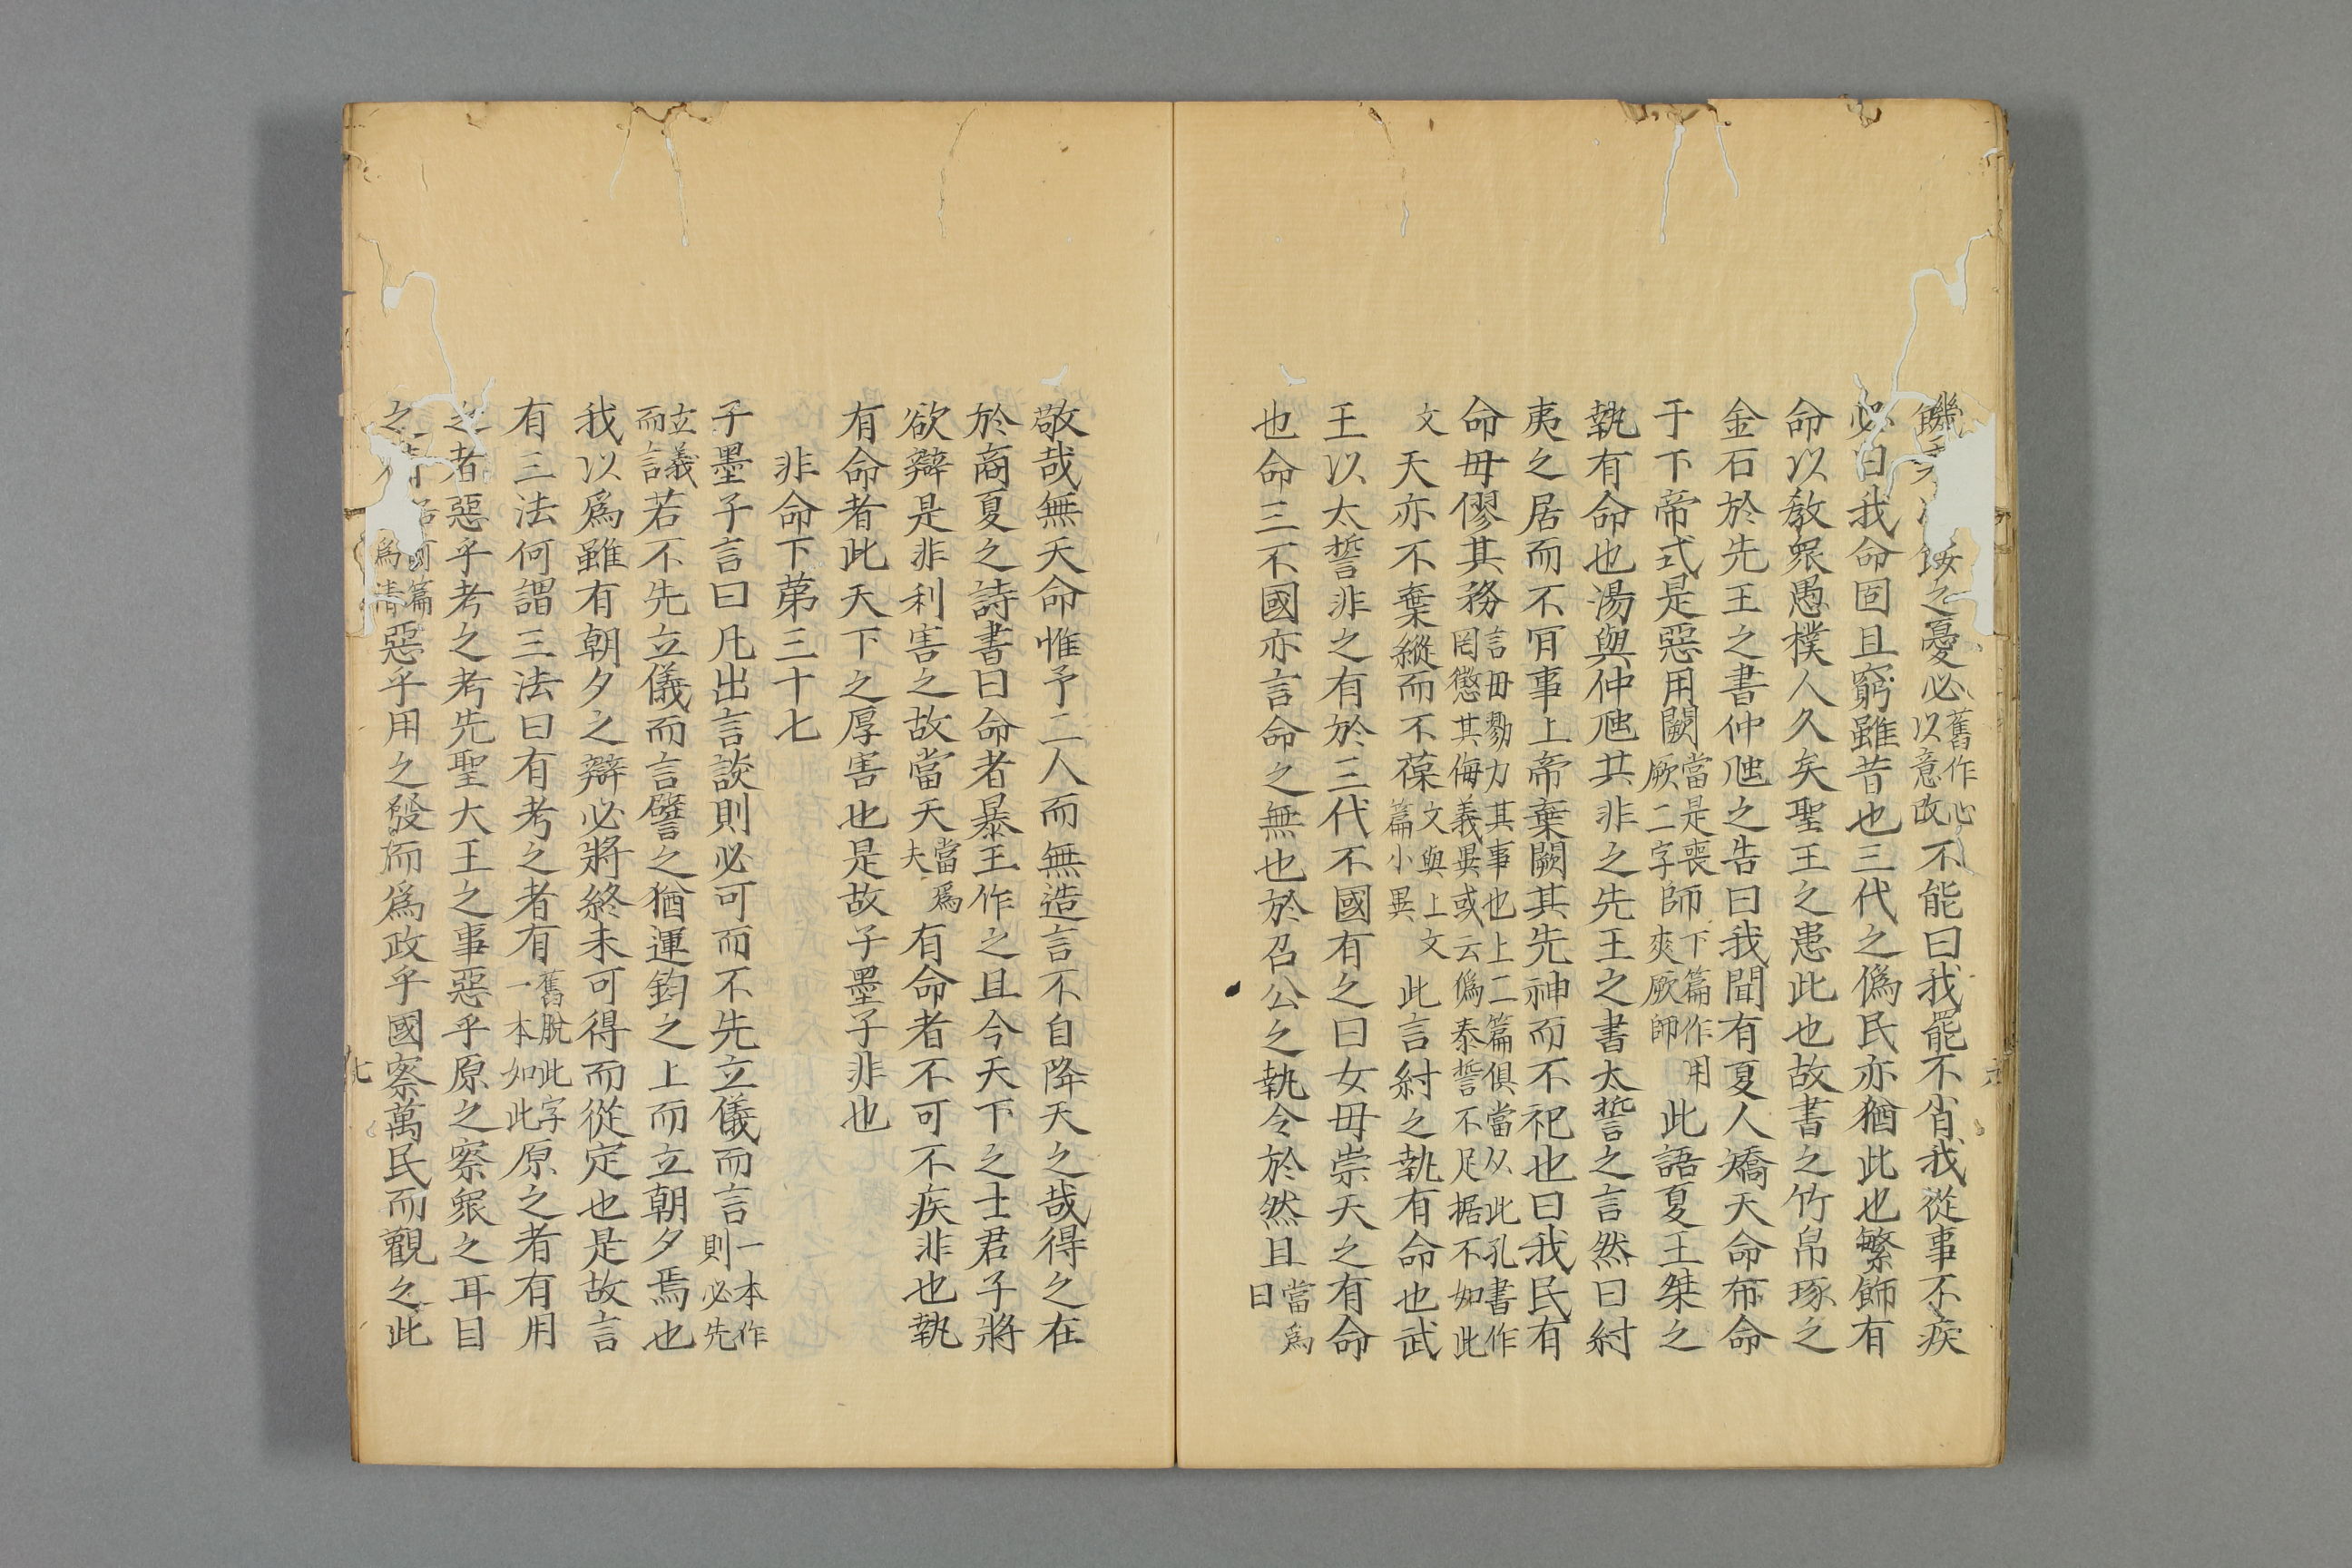 之憂必舊作心以意改不能曰我罷不肖我從事不疾
必曰我命固且窮雖昔也三代之僞民亦猶此也繁飾有
命以敎衆愚樸人久矣聖王之患此也故書之竹帛琢之
金石於先王之書仲虺之告曰我聞有夏人矯天命布命
于下帝式是惡用闕當是喪厥二字師下篇作用爽厥師此語夏王桀之
執有命也湯與仲虺共非之先王之書太誓之言然曰紂
夷之居而不肎事上帝棄闕其先神而不祀也曰我民有
命毋僇其務言毋勠力其事也上二篇俱當从此孔書作罔懲其侮義異或云僞泰誓不足据不如此
文天亦不棄縱而不葆文與上文篇小異此言紂之執有命也武
王以太誓非之有於三代不國有之曰女毋崇天之有命
也命三不國亦言命之無也於召公之執令於然且當爲曰
敬哉無天命惟予二人而無造言不自降天之哉得之在
於商夏之詩書曰命者暴王作之且今天下之士君子將
欲辯是非利害之故當天當爲夫有命者不可不疾非也執
有命者此天下之厚害也是故子墨子非也
非命下第三十七
子墨子言曰凡出言談則必可而不先立儀而言一本作則必先
立義而言若不先立儀而言譬之猶運鈞之上而立朝夕焉也
我以爲雖有朝夕之辯必將終未可得而從定也是故言
有三法何謂三法曰有考之者有舊脫此字一本如此原之者有用
之者惡乎考之考先聖大王之事惡乎原之察衆之耳目
之篇爲清惡乎用之發而爲政乎國察萬民而觀之此
七